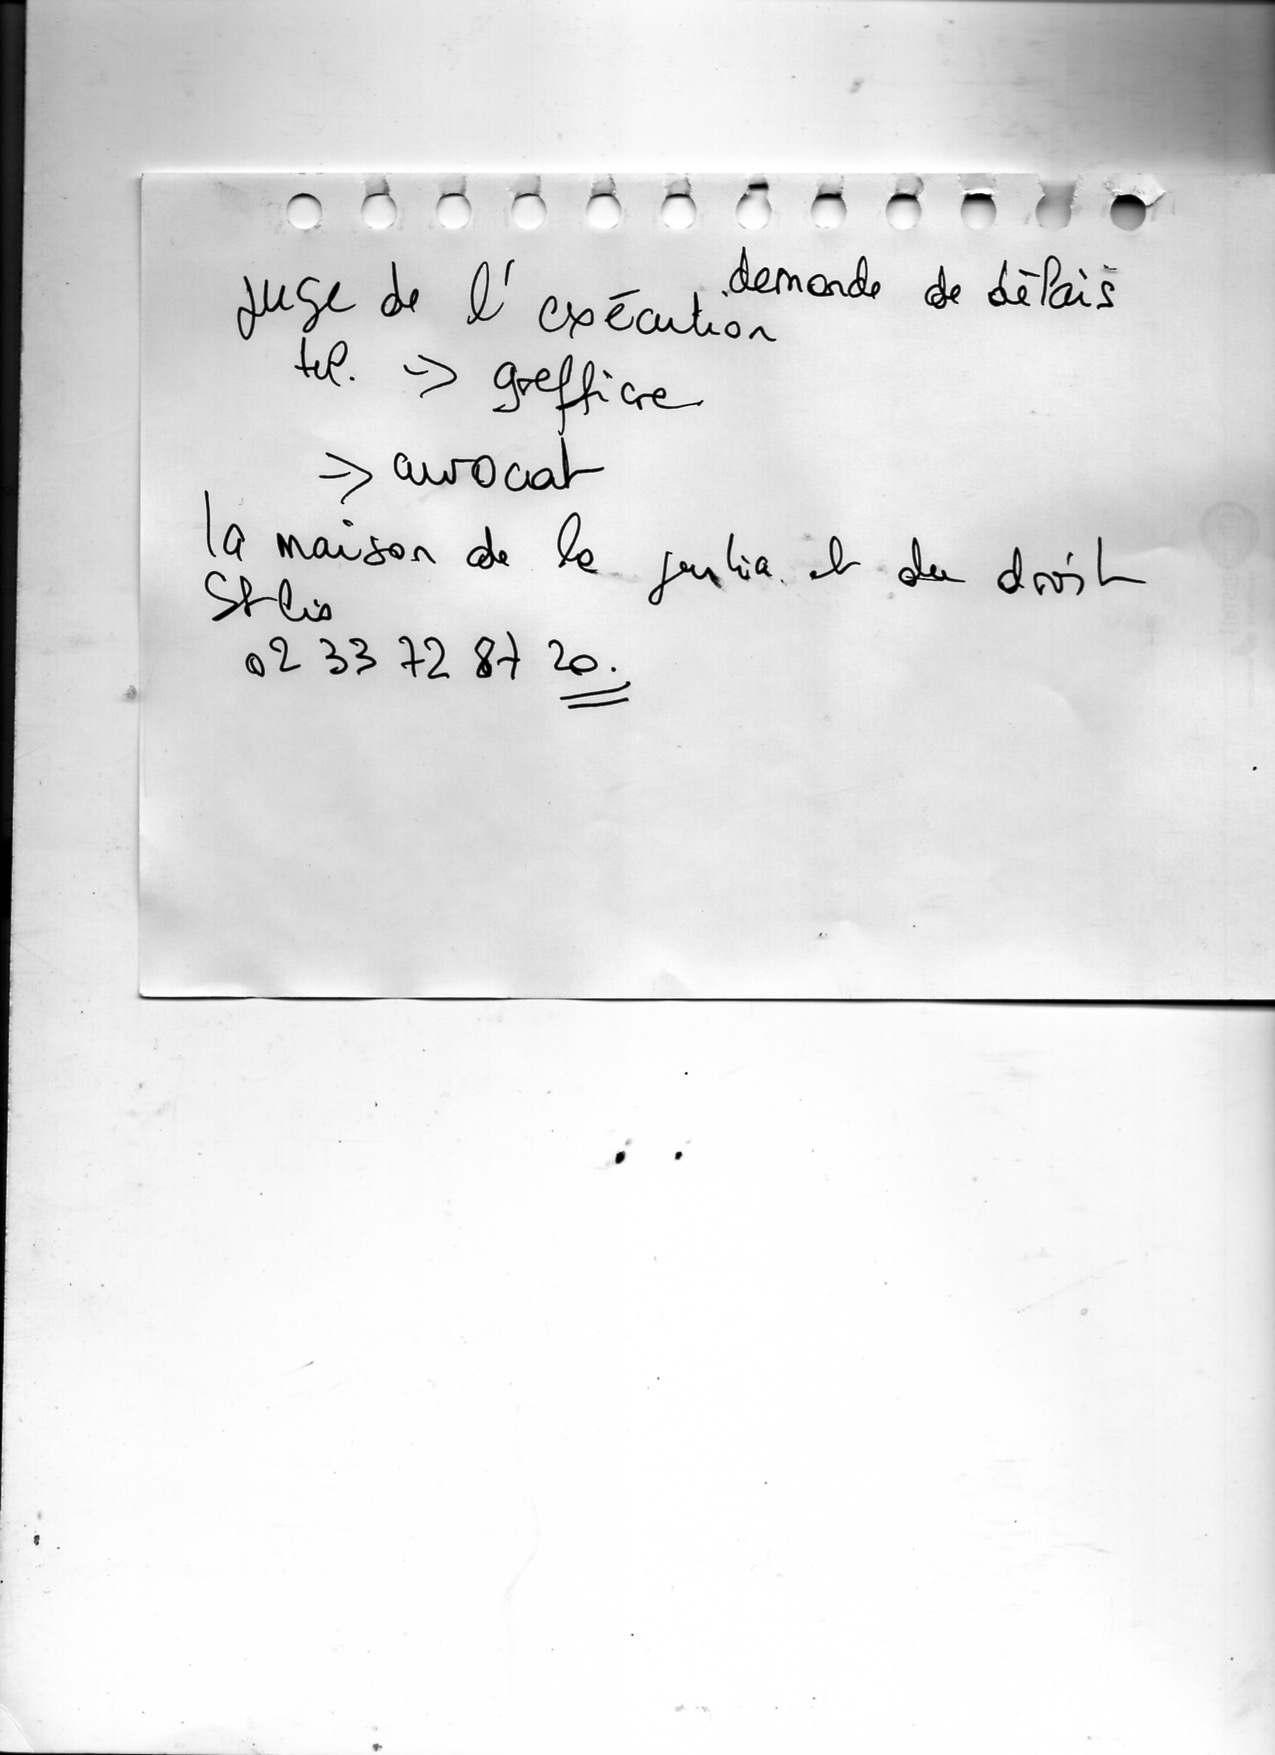 juge de l'exécution demande de délais
tel. -> greffière
-> avocat
la maison de la justice et du droit
St Lô
02 33 72 87 20.